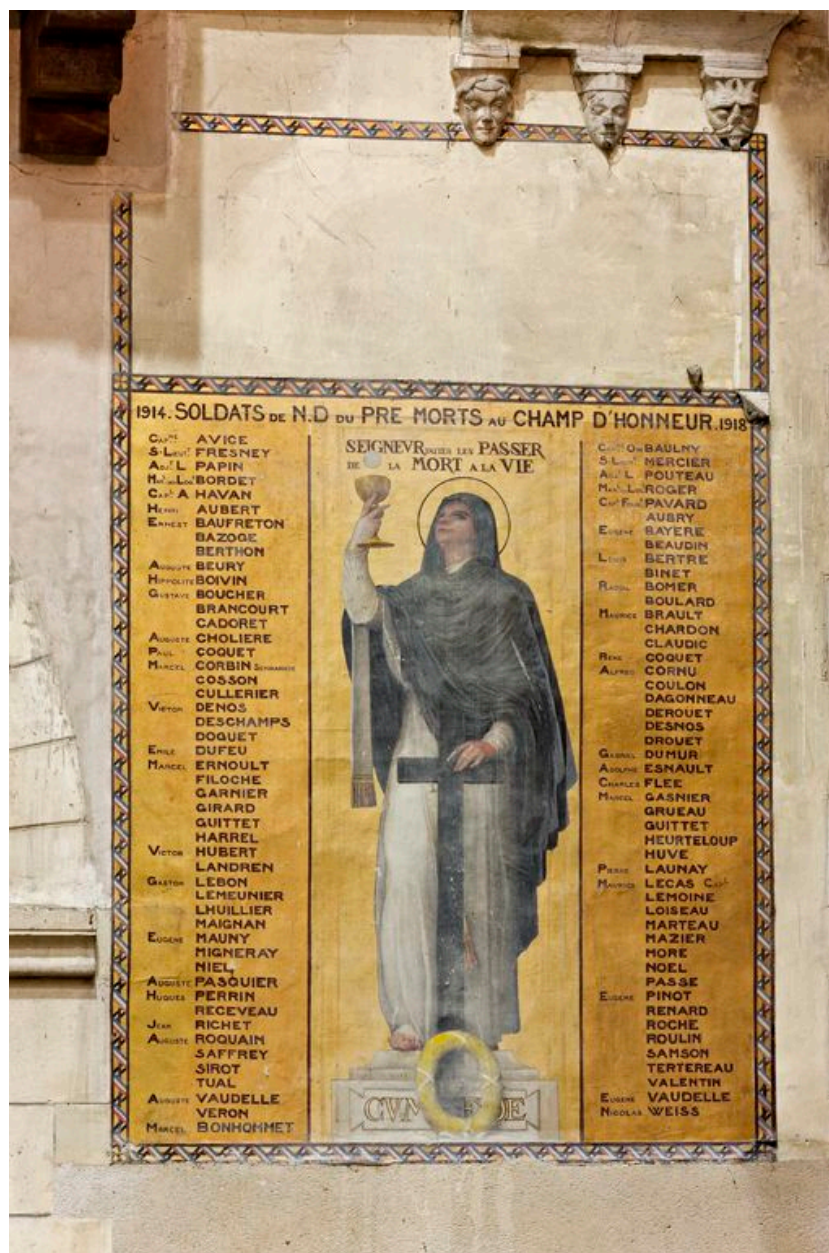 1914. SOLDATS DE N.D DU PRE MORTS AU CHAMP D'HONNEUR. 1918
CAPNE AVICE
S-LIEUT FRESNEY
ADJ L PAPIN
BORDET
CAPL A HAVAN
HENRI AUBERT
ERNEST BAUFRETON
BAZOGE
BERTHON
AUGUSTE BEURY
HIPPOLITE BOIVIN
GUSTAVE BOUCHER
BRANCOURT
CADORET
AUGUSTE CHOLIERE
PAUL COQUET
MARCEL CORBIN
COSSON
CULLERIER
VICTOR DENOS
DESCHAMPS
DOQUET
EMILE DUFEU
MARCEL ERNOULT
FILOCHE
GARNIER
GIRARD
GUITTET
HARREL
VICTOR HUBERT
LANDREN
GASTON LEBON
LEMEUNIER
LHUILLIER
MAIGNAN
EUGENE MAUNY
MIGNERAY
NIEL
AUGUSTE PASQUIER
HUGUES PERRIN
RECEVEAU
JEAN RICHET
AUGUSTE ROQUAIN
SAFFREY
SIROT
TUAL
AUGUSTE VAUDELLE
VERON
MARCEL BONHOMMET
SEIGNEVR FAITES LES PASSER
DE LA MORT A LA VIE
CVM
BAULNY
S-LIEUT MERCIER
ADJ L POUTEAU
ROGER
PAVARD
AUBRY
EUGENE BAYERE
BEAUDIN
LOUIS BERTRE
BINET
RAOUL BOMER
BOULARD
MAURICE BRAULT
CHARDON
CLAUDIC
RENE COQUET
ALFRED CORNU
COULON
DAGONNEAU
DEROUET
DESNOS
DROUET
GABRIEL DUMUR
ADOLPHE ESNAULT
CHARLES FLEE
MARCEL GASNIER
GRUEAU
GUITTET
HEURTELOUP
HUVE
PIERRE LAUNAY
MAURICE LECAS
LEMOINE
LOISEAU
MARTEAU
MAZIER
MORE
NOEL
PASSE
EUGENE PINOT
RENARD
ROCHE
ROULIN
SAMSON
TERTEREAU
VALENTIN
EUGENE VAUDELLE
NICOLAS WEISS